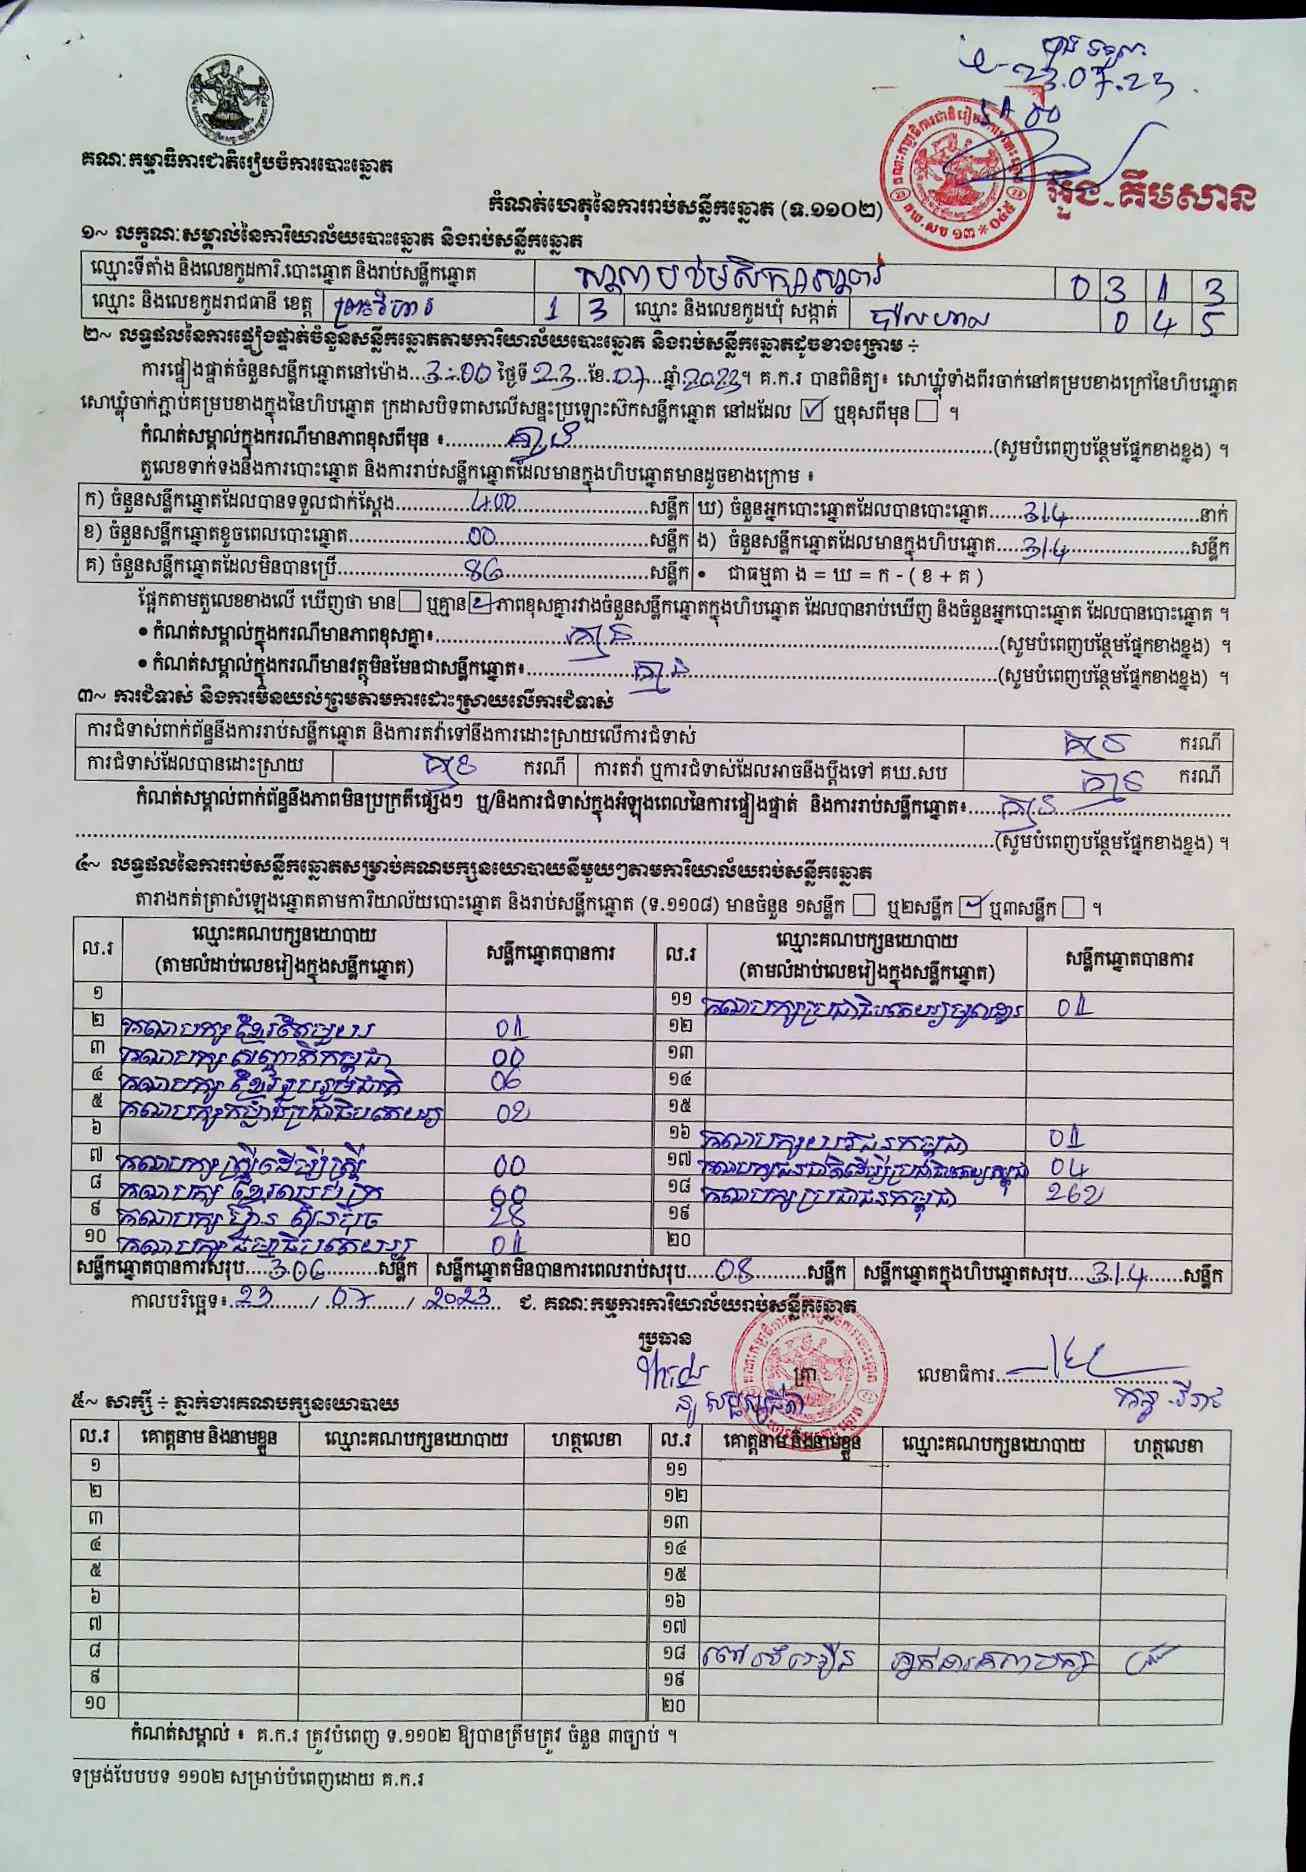 23.07.23
គណៈកម្មាធិការជាតិរៀបចំការបោះឆ្នោត
អ៊ួង-គឹមសាន
កំណត់ហេតុនៃការរាប់សន្លឹកឆ្នោត (ទ.១១០២)
១~ លក្ខណៈសម្គាល់នៃការិយាល័យបោះឆ្នោត និងរាប់សន្លឹកឆ្នោត
ឈ្មោះទីតាំង និងលេខកូដការិ.បោះឆ្នោត និងរាប់សន្លឹកឆ្នោត 0 3 1 3
ឈ្មោះ និងលេខកូដរាជធានី ខេត្ត ព្រះវិហារ 1 3 ឈ្មោះ និងលេខកូដឃុំ សង្កាត់ 0 4 5
២~ លទ្ធផលនៃការផ្ទៀងផ្ទាត់ចំនួនសន្លឹកឆ្នោតតាមការិយាល័យបោះឆ្នោត និងរាប់សន្លឹកឆ្នោតដូចខាងក្រោម ÷
ការផ្ទៀងផ្ទាត់ចំនួនសន្លឹកឆ្នោតនៅម៉ោង...3:00 ថ្ងៃទី 23...ខែ.07...ឆ្នាំ.2023។ គ.ក.រ បានពិនិត្យ៖ សោឃ្លុំទាំងពីរចាក់នៅគម្របខាងក្រៅនៃហិបឆ្នោត
សោឃ្លុំចាក់ភ្ជាប់គម្របខាងក្នុងនៃហិបឆ្នោត ក្រដាសបិទពាសលើសន្ទះប្រឡោះស៊កសន្លឹកឆ្នោត នៅដដែល ☑ ឬខុសពីមុន ☐ ។
កំណត់សម្គាល់ក្នុងករណីមានភាពខុសពីមុន ៖ គ្មាន (សូមបំពេញបន្ថែមផ្នែកខាងខ្នង) ។
តួលេខទាក់ទងនឹងការបោះឆ្នោត និងការរាប់សន្លឹកឆ្នោតដែលមានក្នុងហិបឆ្នោតមានដូចខាងក្រោម ៖
ក) ចំនួនសន្លឹកឆ្នោតដែលបានទទួលជាក់ស្តែង 400 សន្លឹក ឃ) ចំនួនអ្នកបោះឆ្នោតដែលបានបោះឆ្នោត 314 នាក់
ខ) ចំនួនសន្លឹកឆ្នោតខូចពេលបោះឆ្នោត 00 សន្លឹក ង) ចំនួនសន្លឹកឆ្នោតដែលមានក្នុងហិបឆ្នោត 314 សន្លឹក
គ) ចំនួនសន្លឹកឆ្នោតដែលមិនបានប្រើ 86 សន្លឹក • ជាធម្មតា ង = ឃ = ក - ( ខ + គ )
ផ្អែកតាមតួលេខខាងលើ ឃើញថា មាន ☐ ឬគ្មាន ☑ ភាពខុសគ្នារវាងចំនួនសន្លឹកឆ្នោតក្នុងហិបឆ្នោត ដែលបានរាប់ឃើញ និងចំនួនអ្នកបោះឆ្នោត ដែលបានបោះឆ្នោត ។
• កំណត់សម្គាល់ក្នុងករណីមានភាពខុសគ្នា៖ គ្មាន (សូមបំពេញបន្ថែមផ្នែកខាងខ្នង) ។
• កំណត់សម្គាល់ក្នុងករណីមានវត្ថុមិនមែនជាសន្លឹកឆ្នោត៖ គ្មាន (សូមបំពេញបន្ថែមផ្នែកខាងខ្នង) ។
៣~ ការជំទាស់ និងការមិនយល់ព្រមតាមការដោះស្រាយលើការជំទាស់
ការជំទាស់ពាក់ព័ន្ធនឹងការរាប់សន្លឹកឆ្នោត និងការតវ៉ាទៅនឹងការដោះស្រាយលើការជំទាស់ គ្មាន ករណី
ការជំទាស់ដែលបានដោះស្រាយ គ្មាន ករណី ការតវ៉ា ឬការជំទាស់ដែលអាចនឹងប្តឹងទៅ គឃ.សប គ្មាន ករណី
កំណត់សម្គាល់ពាក់ព័ន្ធនឹងភាពមិនប្រក្រតីផ្សេងៗ ឬ/និងការជំទាស់ក្នុងអំឡុងពេលនៃការផ្ទៀងផ្ទាត់ និងការរាប់សន្លឹកឆ្នោត៖ គ្មាន
(សូមបំពេញបន្ថែមផ្នែកខាងខ្នង) ។
៤~ លទ្ធផលនៃការរាប់សន្លឹកឆ្នោតសម្រាប់គណបក្សនយោបាយនីមួយៗតាមការិយាល័យរាប់សន្លឹកឆ្នោត
តារាងកត់ត្រាសំឡេងឆ្នោតតាមការិយាល័យបោះឆ្នោត និងរាប់សន្លឹកឆ្នោត (ទ.១១០៨) មានចំនួន ១សន្លឹក ☐ ឬ២សន្លឹក ☑ ឬ៣សន្លឹក ☐ ។
ល.រ ឈ្មោះគណបក្សនយោបាយ (តាមលំដាប់លេខរៀងក្នុងសន្លឹកឆ្នោត) សន្លឹកឆ្នោតបានការ ល.រ ឈ្មោះគណបក្សនយោបាយ (តាមលំដាប់លេខរៀងក្នុងសន្លឹកឆ្នោត) សន្លឹកឆ្នោតបានការ
១ ១១ គណបក្សប្រជាធិបតេយ្យមូលដ្ឋាន 01
២ គណបក្សខ្មែរតែមួយ 01 ១២
៣ គណបក្សសញ្ជាតិកម្ពុជា 00 ១៣
៤ គណបក្សខ្មែររួបរួមជាតិ 06 ១៤
៥ គណបក្សកម្លាំងប្រជាធិបតេយ្យ 02 ១៥
៦ ១៦ គណបក្សយុវជនកម្ពុជា 01
៧ គណបក្សស្ត្រីដើម្បីស្ត្រី 00 ១៧ គណបក្សជនជាតិដើមប្រជាធិបតេយ្យកម្ពុជា 04
៨ គណបក្សខ្មែរឈប់ក្រ 00 ១៨ គណបក្សប្រជាជនកម្ពុជា 262
៩ គណបក្សហ្វ៊ុនស៊ិនប៉ិច 28 ១៩
១០ គណបក្សធម្មាធិបតេយ្យ 01 ២០
សន្លឹកឆ្នោតបានការសរុប 306 សន្លឹក សន្លឹកឆ្នោតមិនបានការពេលរាប់សរុប 08 សន្លឹក សន្លឹកឆ្នោតក្នុងហិបឆ្នោតសរុប 314 សន្លឹក
កាលបរិច្ឆេទ៖ 23 / 07 / 2023 ជ. គណៈកម្មការការិយាល័យរាប់សន្លឹកឆ្នោត
ប្រធាន
ត្រា លេខាធិការ
៥~ សាក្សី ÷ ភ្នាក់ងារគណបក្សនយោបាយ
ល.រ គោត្តនាម និងនាមខ្លួន ឈ្មោះគណបក្សនយោបាយ ហត្ថលេខា ល.រ គោត្តនាម និងនាមខ្លួន ឈ្មោះគណបក្សនយោបាយ ហត្ថលេខា
១ ១១
២ ១២
៣ ១៣
៤ ១៤
៥ ១៥
៦ ១៦
៧ ១៧
៨ ១៨
៩ ១៩
១០ ២០
កំណត់សម្គាល់ ៖ គ.ក.រ ត្រូវបំពេញ ទ.១១០២ ឱ្យបានត្រឹមត្រូវ ចំនួន ៣ច្បាប់ ។
ទម្រង់បែបបទ ១១០២ សម្រាប់បំពេញដោយ គ.ក.រ